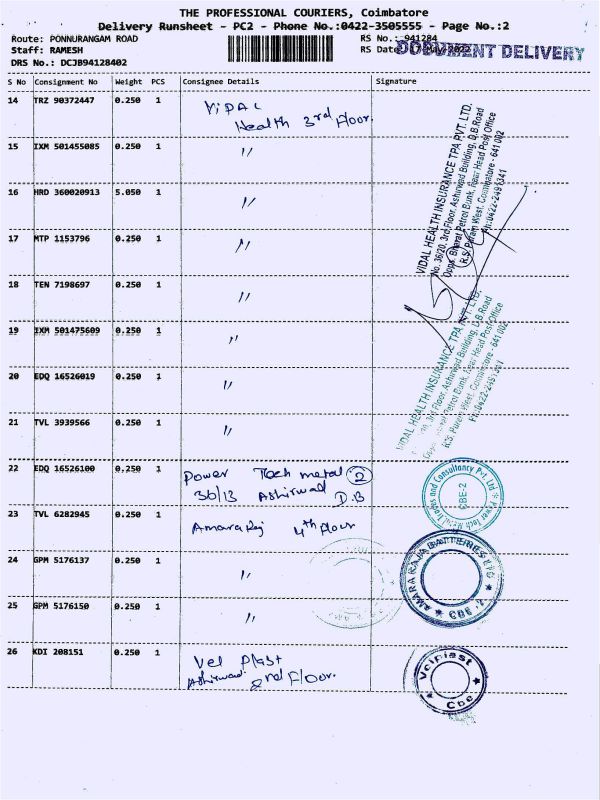 THE PROFESSIONAL COURIERS, Coimbatore
Delivery Runsheet - PC2 - Phone No.:0422-3505555 - Page No.:2
Route: PONNURANGAM ROAD
RS No.: 941284
Staff: RAMESH
RS Date: 17-May-2022
DOCUMENT DELIVERY
DRS No.: DCJB94128402
S No Consignment No Weight PCS Consignee Details Signature
14 TRZ 90372447 0.250 1 Vipal
Health 3rd Floor.
15 IXM 501455085 0.250 1 "
16 HRD 360020913 5.050 1 "
17 MTP 1153796 0.250 1 "
18 TEN 7198697 0.250 1 "
19 IXM 501475609 0.250 1 "
20 EDQ 16526019 0.250 1 "
21 TVL 3939566 0.250 1 "
VIDAL HEALTH INSURANCE TPA PVT. LTD.
No. 36/20, 3rd Floor, Ashirwad Building, D.B.Road
Opp. Bharat Petrol Bunk, Near Head Post Office
R.S. Puram West, Coimbatore - 641 002
Ph:0422-2491341
VIDAL HEALTH INSURANCE TPA PVT. LTD.
3rd Floor, Ashirwad Building, D.B.Road
Petrol Bunk, Near Head Post Office
R.S. Puram West, Coimbatore - 641 002
22 EDQ 16526100 0.250 1 Power Tech metal 2
36/13 Ashirwad D.B
Power Tech Metal Trades and Consultancy Pvt. Ltd
CBE-2
23 TVL 6282945 0.250 1 AmaraRaj 4th Floor
24 GPM 5176137 0.250 1 "
AMARA RAJA BATTERIES LTD
CBE-2
25 GPM 5176150 0.250 1 "
26 KDI 208151 0.250 1 Vel Plast
Ashirwad 2nd Floor.
Velplast
Cbe